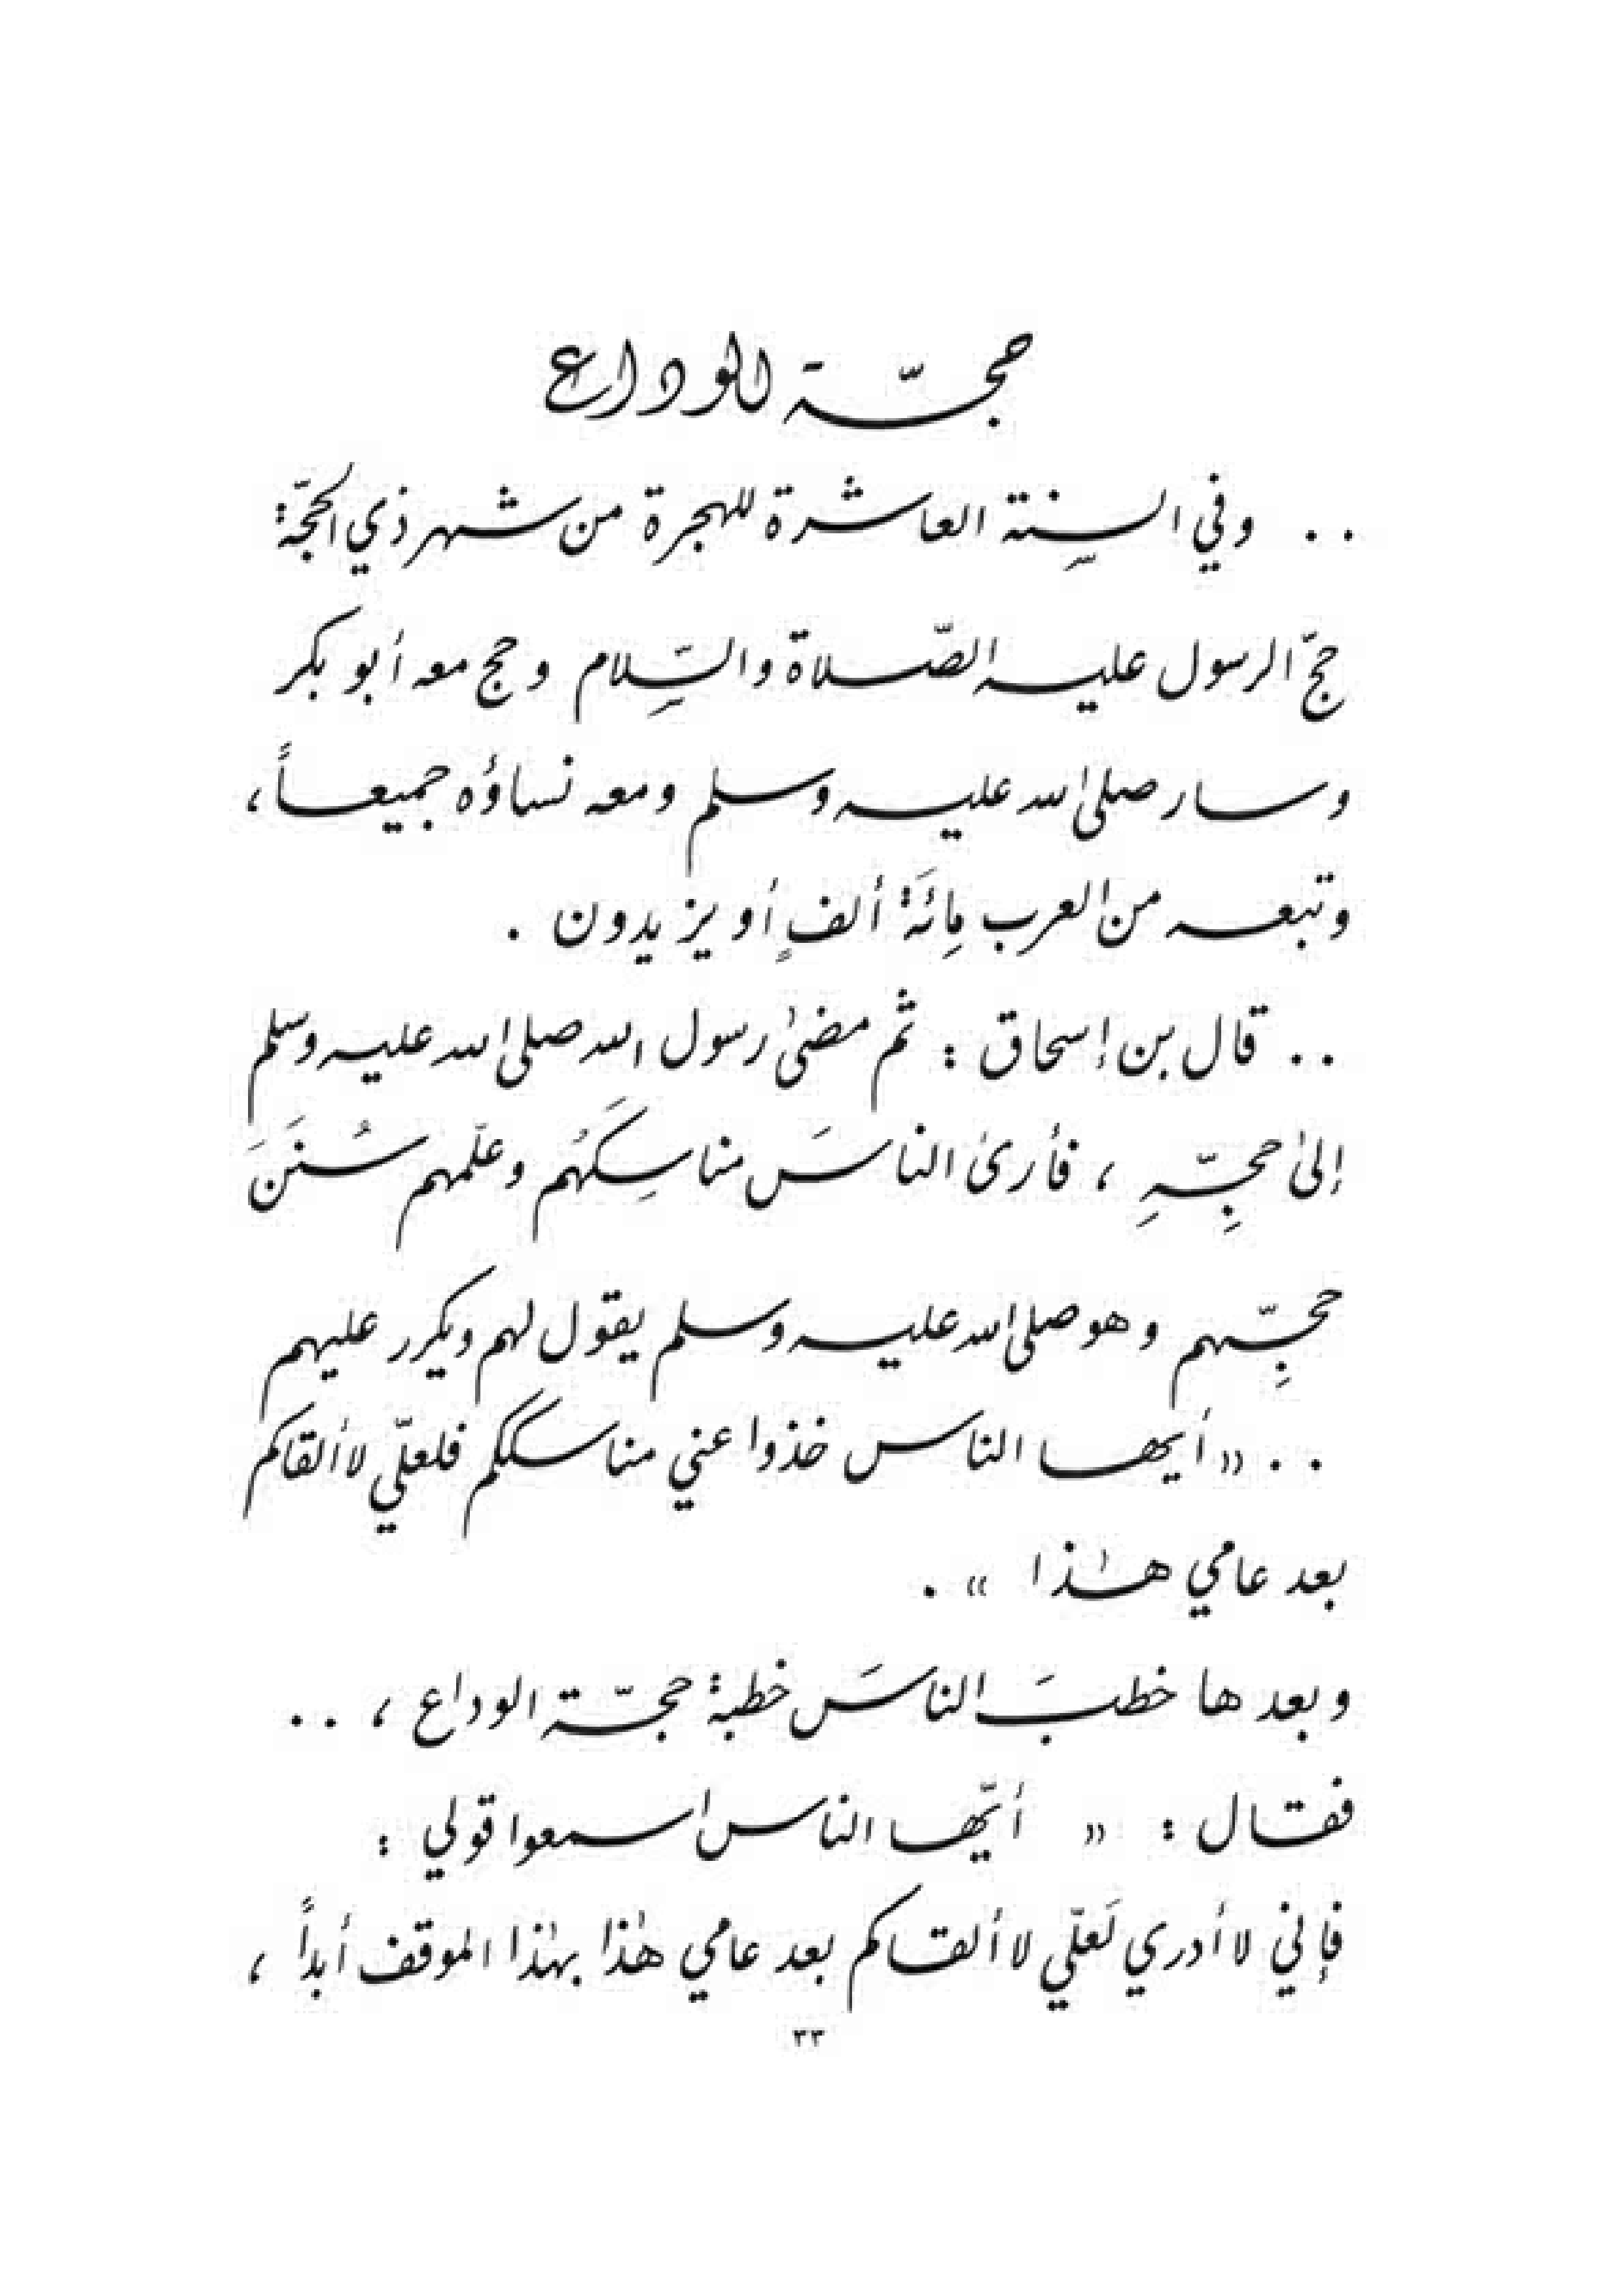 حجّة الوداع
.. وفي السِّنة العاشرة للهجرة من شهر ذي الحجّة
حجّ الرسول عليه الصّلاة والسِّلام وحج معه أبو بكر
وسار صلى الله عليه وسلم ومعه نساؤه جميعاً ،
وتبعه من العرب مِائَة ألفٍ أو يزيدون .
.. قال بن إسحاق : ثم مضىٰ رسول الله صلى الله عليه وسلم
إلىٰ حجِّهِ ، فأرىٰ الناسَ مناسِكَهُم وعلّمهم سُنَنَ
حجِّهم وهو صلى الله عليه وسلم يقول لهم ويكرر عليهم
.. « أيها الناس خذوا عني مناسككم فلعلّي لا ألقاكم
بعد عامي هـٰذا » .
وبعدها خطبَ الناسَ خطبة حجّة الوداع ، ..
فقال : « أيّها الناس اسمعوا قولي :
فإني لا أدري لَعلّي لا ألقاكم بعد عامي هٰذا بهٰذا الموقف أبداً ،
٣٣